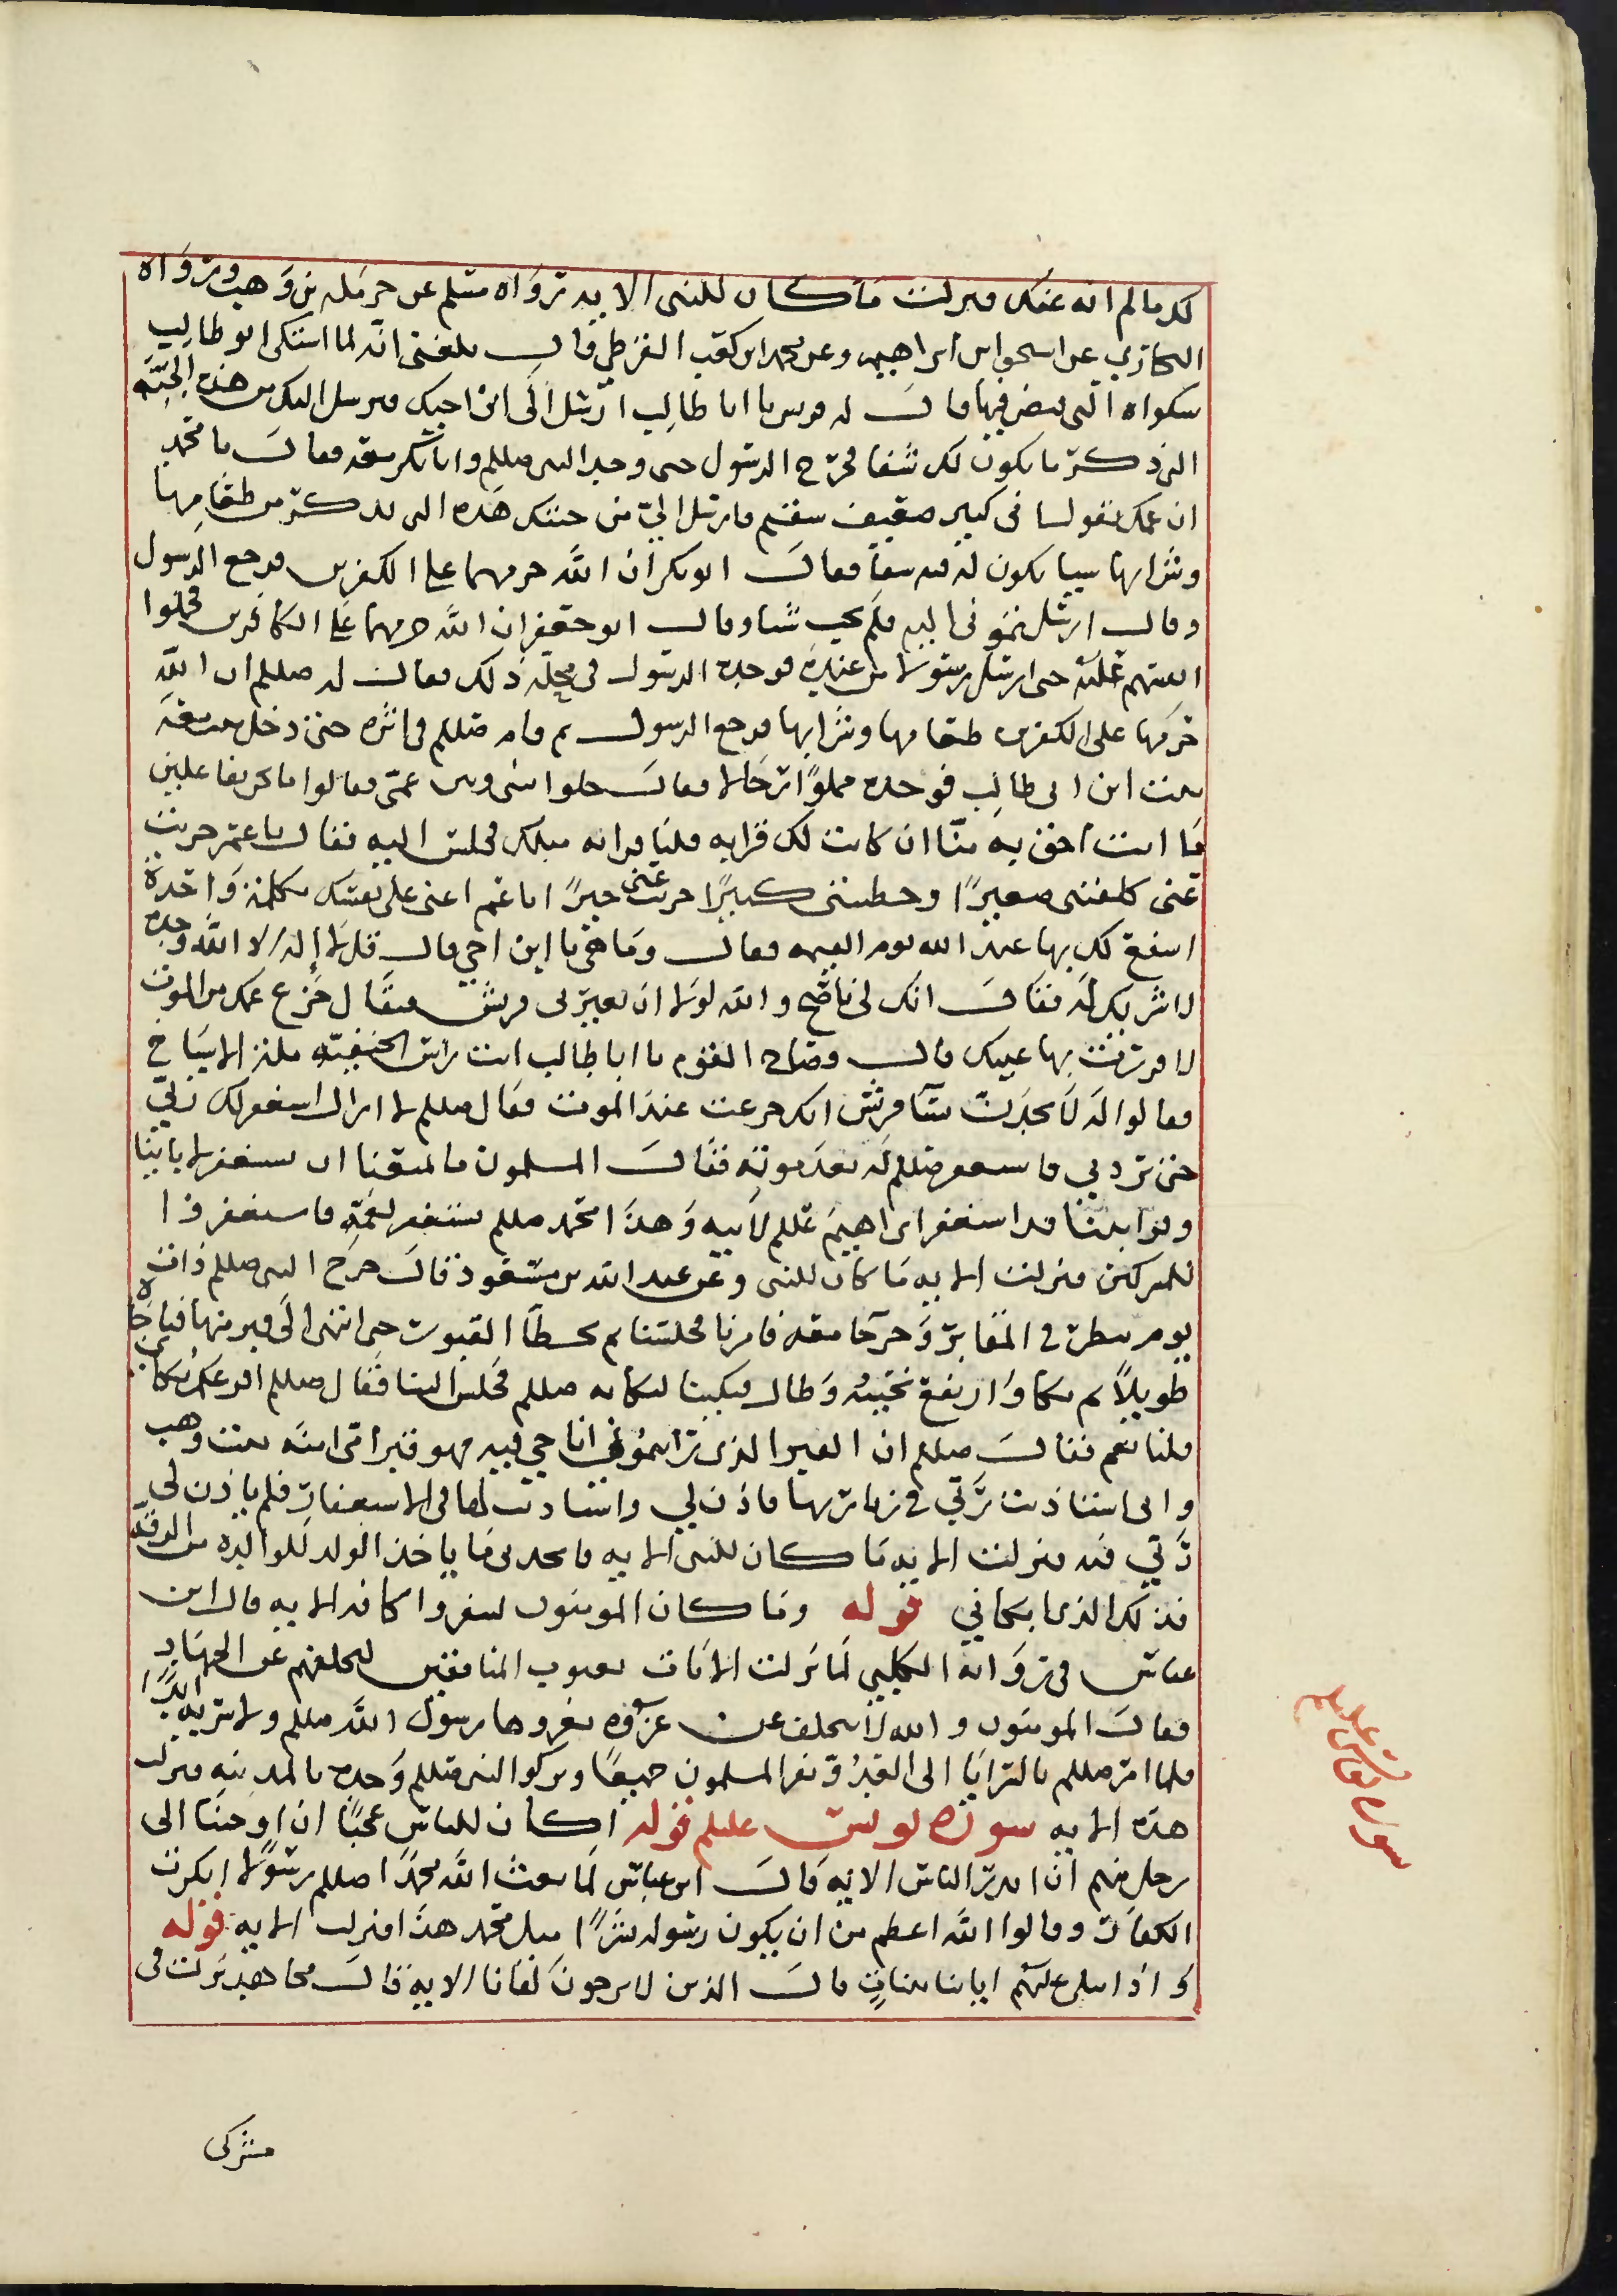 لك ما لم انه عنك فنزلت ما كان للنبي الايه رواه مسلم عن حرمله بن وهب ورواه
البخاري عن اسحق ابن ابراهيم وعن محمد ابن كعب القرظي قال بلغني انه لما اشتكى ابو طالب
شكواه التي قبض فيها قالت له قريش يا ابا طالب ارسل الى ابن اخيك فيرسل اليك من هذه الجنه
الذي ذكر ما يكون لك شفا فخرج الرسول حتى وجد النبي صللم وابا بكر معه فقال يا محمد
ان عمك يقول اني كبير ضعيف سقيم فارسل الي من جنتك هذه التي تذكر من طعامها
وشرابها شيا يكون لي فيه شفا فقال ابو بكر ان الله حرمهما على الكفرين فرجع الرسول
وقال ارسلتموني اليه فلم يجب شيا وقال ابو حقفر ان الله حرمهما على الكافرين فحملوا
انفسهم عليه حتى ارسل رسولا من عنده فوجده الرسول في مجلسه ذلك فقال له صللم ان الله
حرمها على الكفرين طعامها وشرابها فرجع الرسول ثم قام صللم في اثره حتى دخل معه
بيت ابن ابي طالب فوجده مملوًا رجالا فقال خلوا بيني وبين عمي فقالوا ما نحن بفاعلين
ما انت احق به منا ان كانت لك قرابه فلنا قرابه مثلك فجلس اليه فقال يا عم جزيت
عني كفلتني صغيرًا وحطتني كبيرًا جزيت عني خيرًا يا عم اعني على نفسك بكلمة واحدة
اشفع لك بها عند الله يوم القيمه فقال وما هي يا ابن اخي قال قل لا إله الا الله وحده
لا شريك له فقال انك لي ناصح والله لولا ان تعيرني قريش فيقال جزع عمك من الموت
لاقررت بها عينك قال وصاح القوم يا ابا طالب انت راس الحنيفيه مله الاشياخ
فقالوا له لا تحدث نسآ قريش انك جزعت عند الموت فقال صللم لا ازال استغفر لك ربي
حتى يردني فاستغفر صللم له بعد موته فقال المسلمون ما يمنعنا ان نستغفر لابائنا
وقراباتنا قد استغفر ابراهيم عللم لابيه وهذا محمد صللم يستغفر لعمه فاستغفروا
للمشركين فنزلت الايه ما كان للنبي وعن عبد الله بن مسعود قال خرج النبي صللم ذات
يوم ينظر في المقابر وخرجنا معه فامرنا فجلسنا ثم تخطا القبور حتى انتهى الى قبر منها فناجاه
طويلاً ثم بكا وارتفع نحيبه وطال فبكينا لبكائه صللم فجلس الينا فقال صللم افزعكم بكاي
قلنا نعم فقال صللم ان القبر الذي رايتموني اناجي فيه فهو قبر امي امنه بنت وهب
واني استاذنت ربي في زيارتها فاذن لي واستاذنته لها في الاستغفار فلم ياذن لي
ربي فيه فنزلت الايه ما كان للنبي الايه فاخذني ما ياخذ الولد للوالدة من الرقه
فذلك الذي ابكاني قوله وما كان المومنون لينفروا كافه الايه قال ابن
عباس في رواية الكلبي لما نزلت الايات بعيوب المنافقين لتخلفهم عن الجهاد
فقال المومنون والله لا نتخلف عن غزوه يغزوها رسول الله صللم ولا سريه ابدًا
فلما امر صللم بالسرايا الى العدو نفر المسلمون جميعًا وتركوا النبي صللم وحده بالمدينه فنزلت
هذه الايه سورة يونس عليلم قوله اكان للناس عجبًا ان اوحينا الى
رجل منهم ان انذر الناس الايه قال ابن عباس لما بعث الله محمدًا صللم رسولًا انكرت
الكفار وقالوا الله اعظم من ان يكون رسوله بشرًا مثل محمد هذا فنزلت الايه قوله
واذا تتلى عليهم اياتنا بيناتٍ قال الذين لا يرجون لقانا الايه قال مجاهد نزلت في
مشركي
سورة يونس عليلم